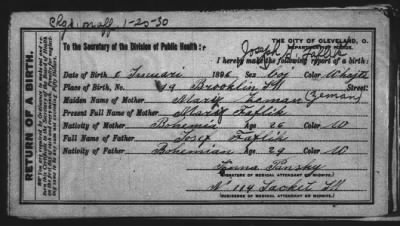 Chg'd on off 1-20-30
THE CITY OF CLEVELAND, O.
Joseph J. Taflik
To the Secretary of the Division of Public Health:
I hereby make the following report of a birth:
Date of Birth 6 Januari 1896 Sex boy Color Whajt
Place of Birth, No. 49 Brooklin St Street:
Maiden Name of Mother Mary Zeman (Zeman)
Present Full Name of Mother Mary Taflik
Nativity of Mother Bohemia Age 26 Color W
Full Name of Father Josef Taflik
Nativity of Father Bohemian Age 29 Color W
Anna Pinsky
(SIGNATURE OF MEDICAL ATTENDANT OR MIDWIFE.)
No 119 Sacket St
(RESIDENCE OF MEDICAL ATTENDANT OR MIDWIFE.)
RETURN OF A BIRTH.